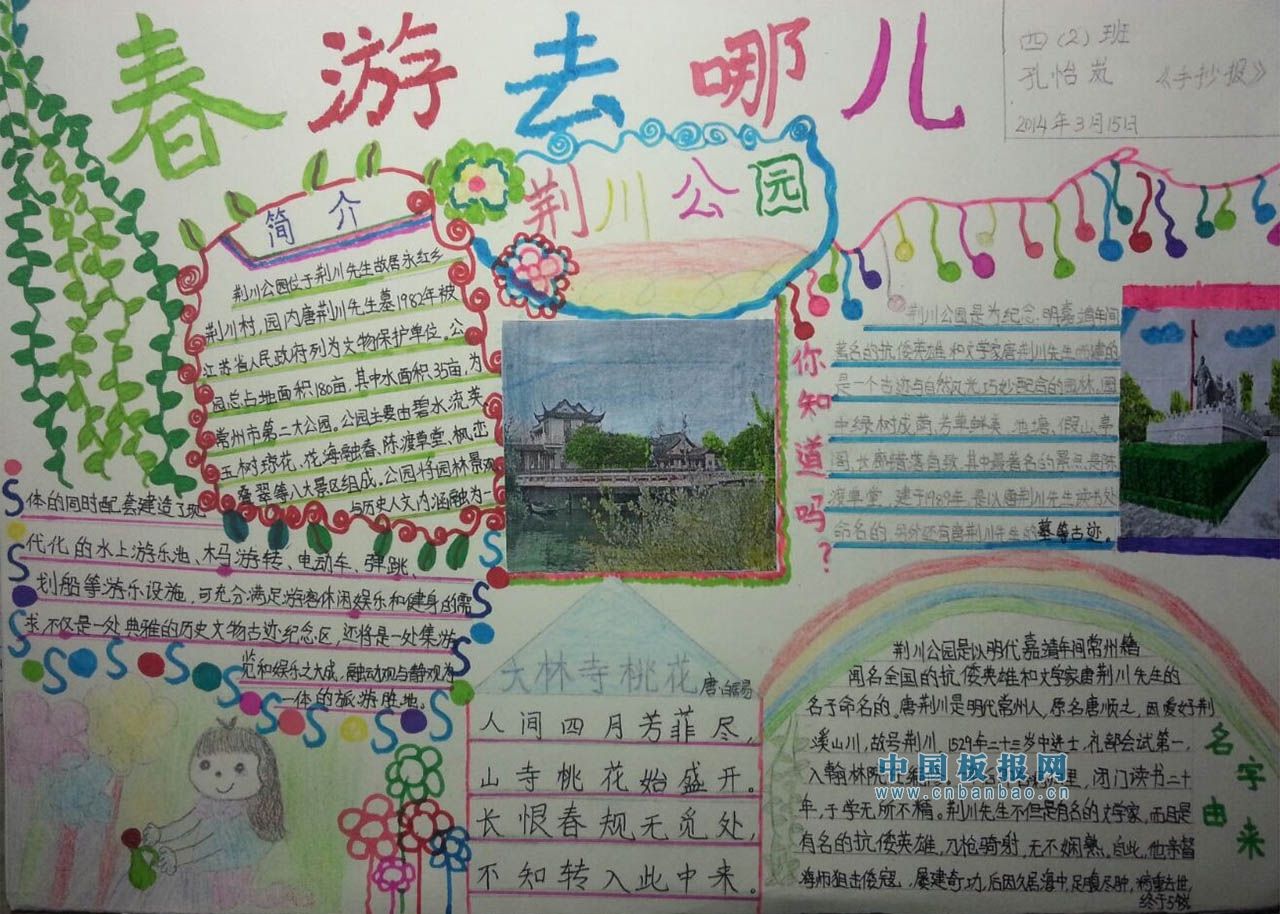 春游去哪儿
四（2）班
孔怡岚 《手抄报》
2014年3月15日
荆川公园
简介
荆川公园位于荆川先生故居永红乡
荆川村，园内唐荆川先生墓1982年被
江苏省人民政府列为文物保护单位。公
园总占地面积180亩，其中水面积35亩，为
常州市第二大公园。公园主要由碧水流芙
玉树琼花、花海融春、陈渡草堂、枫恋
叠翠等八大景区组成。公园将园林景观
与历史人文内涵融为一
体的同时配套建造了现
代化的水上游乐池、木马游转、电动车、弹跳、
划船等游乐设施，可充分满足游客休闲娱乐和健身的需
求，不仅是一处典雅的历史文物古迹纪念区，还将是一处集游
览和娱乐之大成，融动观与静观为
一体的旅游胜地。
你知道吗？
荆川公园是为纪念明嘉靖年间
著名的抗倭英雄和文学家唐荆川先生而建的
是一个古迹与自然风光巧妙配合的园林。园
中绿树成荫，芳草鲜美，池塘、假山、亭
阁、长廊错落自致，其中最著名的景点是陈
渡草堂，建于1989年，是以唐荆川先生读书处
命名的，另外还有唐荆川先生的墓等古迹。
大林寺桃花 唐 白居易
人间四月芳菲尽，
山寺桃花始盛开。
长恨春规无觅处，
不知转入此中来。
名字由来
荆川公园是以明代嘉靖年间常州籍
闻名全国的抗倭英雄和文学家唐荆川先生的
名子命名的。唐荆川是明代常州人，原名唐顺之，因爱好荆
溪山川，故号荆川。1529年二十三岁中进士，礼部会试第一，
入翰林院 里，闭门读书二十
年，于学无所不精。荆川先生不但是有名的文学家，而且是
有名的抗倭英雄，刀枪骑射，无不娴熟，自此，他亲督
海师狙击倭寇，屡建奇功，后因久居海中，足腹尽肿，病重去世，
终于5岁。
中国板报网
www.cnbanbao.cn